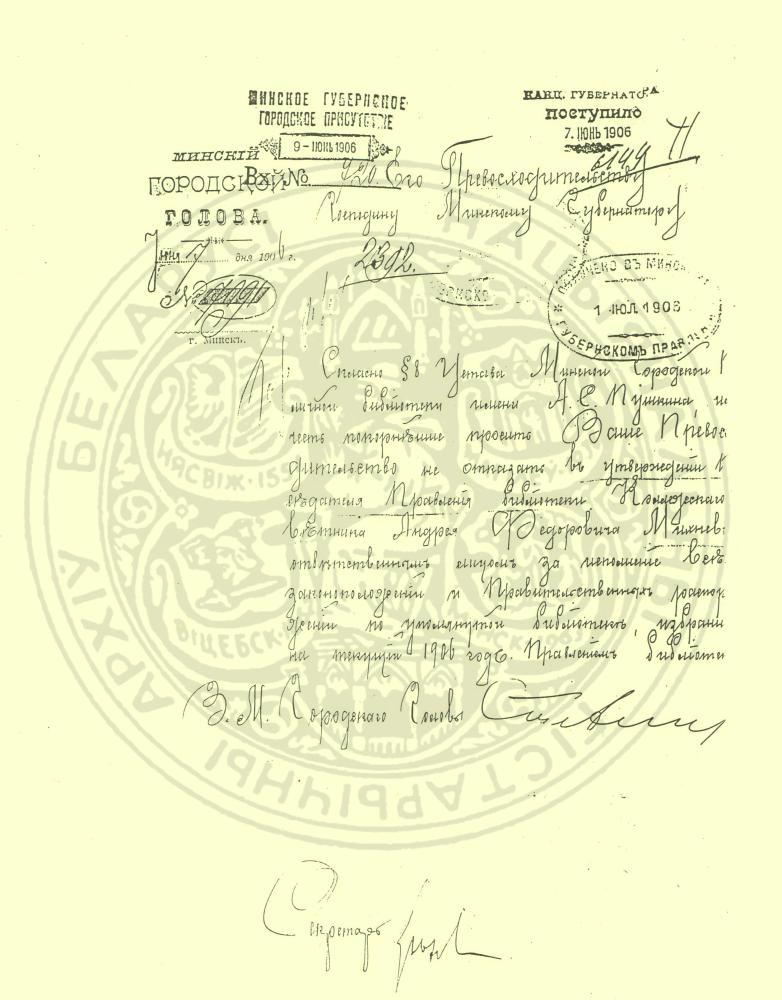 МИНСКОЕ ГУБЕРНСКОЕ
ГОРОДСКОЕ ПРИСУТСТВІЕ
9 - ІЮНЬ 1906
Вх. № 920.
КАНЦ. ГУБЕРНАТОРА
ПОСТУПИЛО
7. ІЮНЬ 1906
МИНСКІЙ
ГОРОДСКОЙ
ГОЛОВА.
Іюня 7 дня 1906 г.
№
г. Минскъ.
Его Превосходительству
Господину Минскому Губернатору
2392.
ПОЛУЧЕНО ВЪ МИНСК
1 ІЮЛ. 1906
ГУБЕРНСКОМЪ ПРАВЛЕН
Согласно §8 Устава Минской Городской П
личной библіотеки имени А. С. Пушкина и
честь покорнѣйше просить Ваше Превос
дительство не отказать въ утвержденіи П
сѣдателя Правленія библіотеки Коллежскаго
вѣтника Андрея Федоровича Михнев
отвѣтственнымъ лицомъ за исполненіе всѣ
законоположеній и Правительственныхъ распор
женій по упомянутой библіотекѣ, избранн
на текущій 1906 годъ. Правленіемъ библіотеки
З. М. Городскаго Головы
Секретарь
АРХІЎ БЕЛАРУСІ
НЯСВІЖ
ВІЦЕБСК
МІНСК
ГІСТАРЫЧНЫ